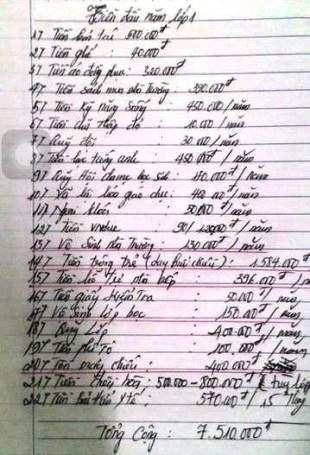 Tiền đầu năm lớp 1
1, Tiền bán trú 500.000đ
2, Tiền ghế : 40.000đ
3, Tiền áo đồng phục : 320.000đ
4, Tiền sách mua nhà trường : 390.000đ
5, Tiền kỹ năng sống : 450.000 / năm
6, Tiền chữ thập đỏ : 10.000 / năm
7, Quỹ đội : 30.000 / năm
8, tiếng anh : 450.000đ / năm
9, Quỹ Hội : 110.000 / năm
10, Vở 42.000đ / năm
11, khoản : 50.000đ / năm
12, Tiền 90/
13, Vệ Sinh nhà Trường : 130.000đ / năm
14, Tiền trông trẻ (dạy buổi chiều) : 1.584.000đ
15, Tiền 396.000đ /
16, Tiền giấy kiểm Tra 50.000đ / năm
17, Vệ sinh lớp học 150.000đ / năm
18, Quỹ Lớp : 400.000đ / năm
19, Tiền 100.000 / năm
20, Tiền máy chiếu : 400.000đ
21, Tiền 500.000 - 800.000đ / tuỳ lớp
22, Tiền bảo hiểm Y tế : 570.000đ / 15 Tháng
Tổng Cộng : 7.510.000đ